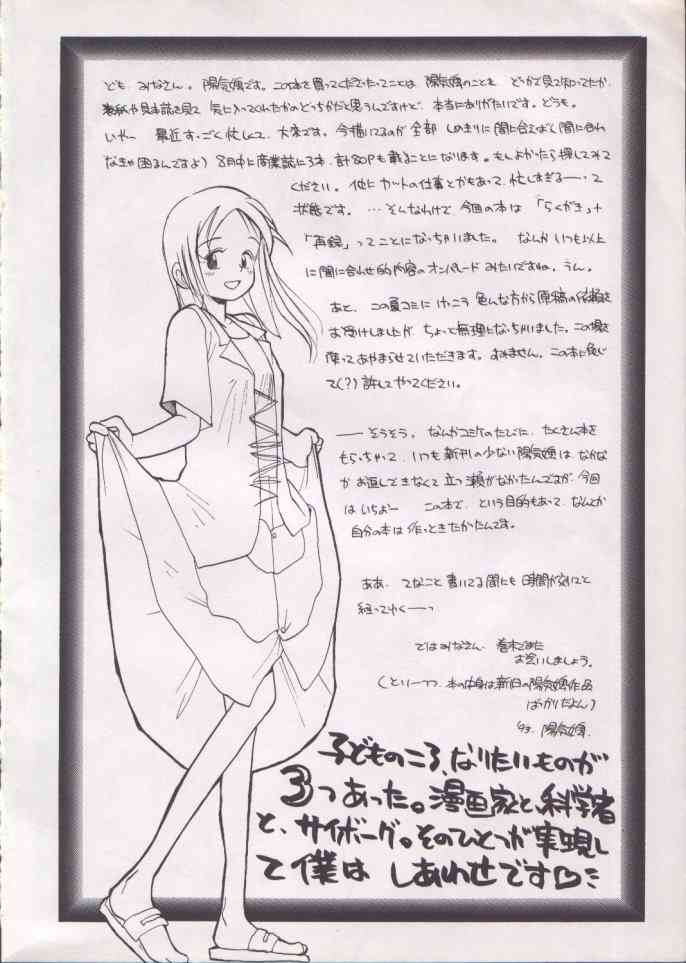 ども みなさん。陽気婢です。この本を買ってくださったってことは 陽気婢のことを どっかで見て知ってたか、
表紙や見本誌を見て 気に入ってくれたかのどっちかだと思うんですけど、本当にありがたいです。どうも。
いやー 最近すっごく忙しくて、大変です。今描いてるのが全部 しめきりに間に合えば(間に合わ
なきゃ困るんですよ) 8月中に商業誌に3本、計80Pも載ることになります。もしよかったら探してみて
ください。他にカットの仕事とかもあって、忙しすぎるーって
状態です。…そんなわけで 今回の本は 「らくがき」+
「再録」ってことになっちゃいました。なんか いつも以上
に間に合わせ的内容のオンパレードみたいですね。うん。
あと、この夏コミに けっこう 色んな方から原稿の依頼を
お受けしましたが ちょっと無理になっちゃいました。この場を
借りてあやまらせていただきます。すみません。この本に免じ
て(?)許してやってください。
──そうそう。なんかコミケのたびに、たくさん本を
もらっちゃって、いつも新刊の少ない陽気婢は、なかな
かお返しできなくて立つ瀬がなかったんですが、今回
はいちおー この本で、という目的もあって、なんとか
自分の本は作っときたかったんです。
ああ、てなこと書いてる間にも時間が刻々と
経ってゆくーっ
ではみなさん 巻末でまた
お会いしましょう。
(といーつつ、本の中身は新旧の陽気婢作品
ばっかりだよん)
'93. 陽気婢.
子どものころ、なりたいものが
3つあった。漫画家と、科学者
と、サイボーグ。そのひとつが実現し
て僕は しあわせです♡